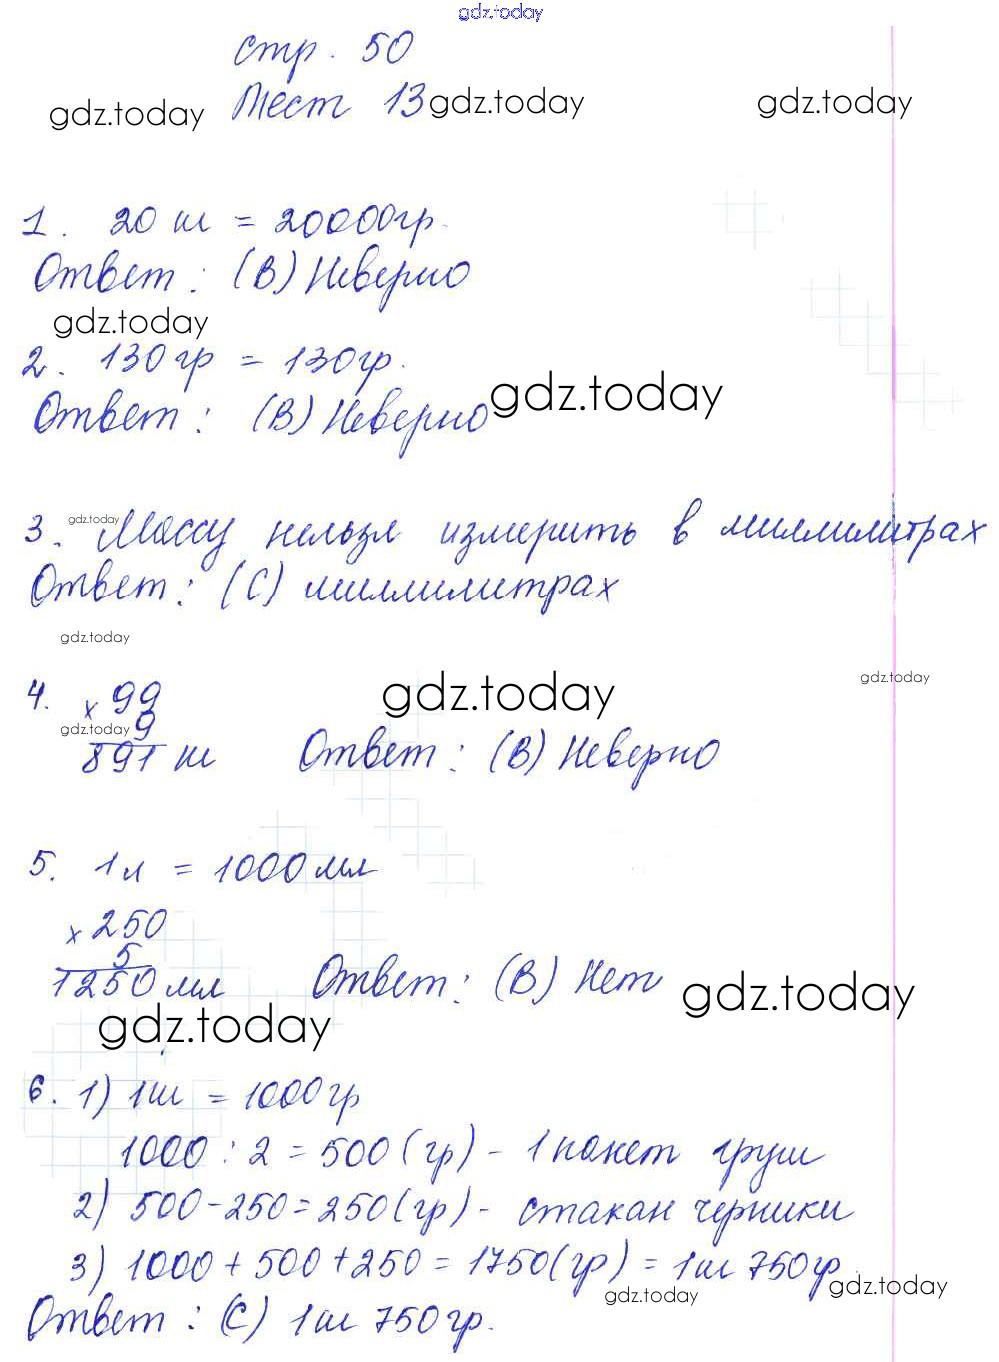 gdz.today
стр. 50
gdz.today Тест 13 gdz.today gdz.today
1. 20 кг = 20000гр.
Ответ: (В) Неверно
gdz.today
2. 130 гр = 130гр.
Ответ: (В) Неверно gdz.today
3. gdz.today Массу нельзя измерить в миллилитрах
Ответ: (С) миллилитрах
gdz.today
gdz.today
4. × 99 gdz.today
gdz.today 9
891 кг Ответ: (В) Неверно
5. 1л = 1000мл
× 250
5
1250мл Ответ: (В) Нет gdz.today
gdz.today
6. 1) 1кг = 1000гр
1000 : 2 = 500 (гр) - 1 пакет груш
2) 500-250=250(гр)- стакан черники
3) 1000 + 500 + 250 = 1750(гр) = 1кг 750гр.
gdz.today gdz.today
Ответ: (С) 1кг 750гр.